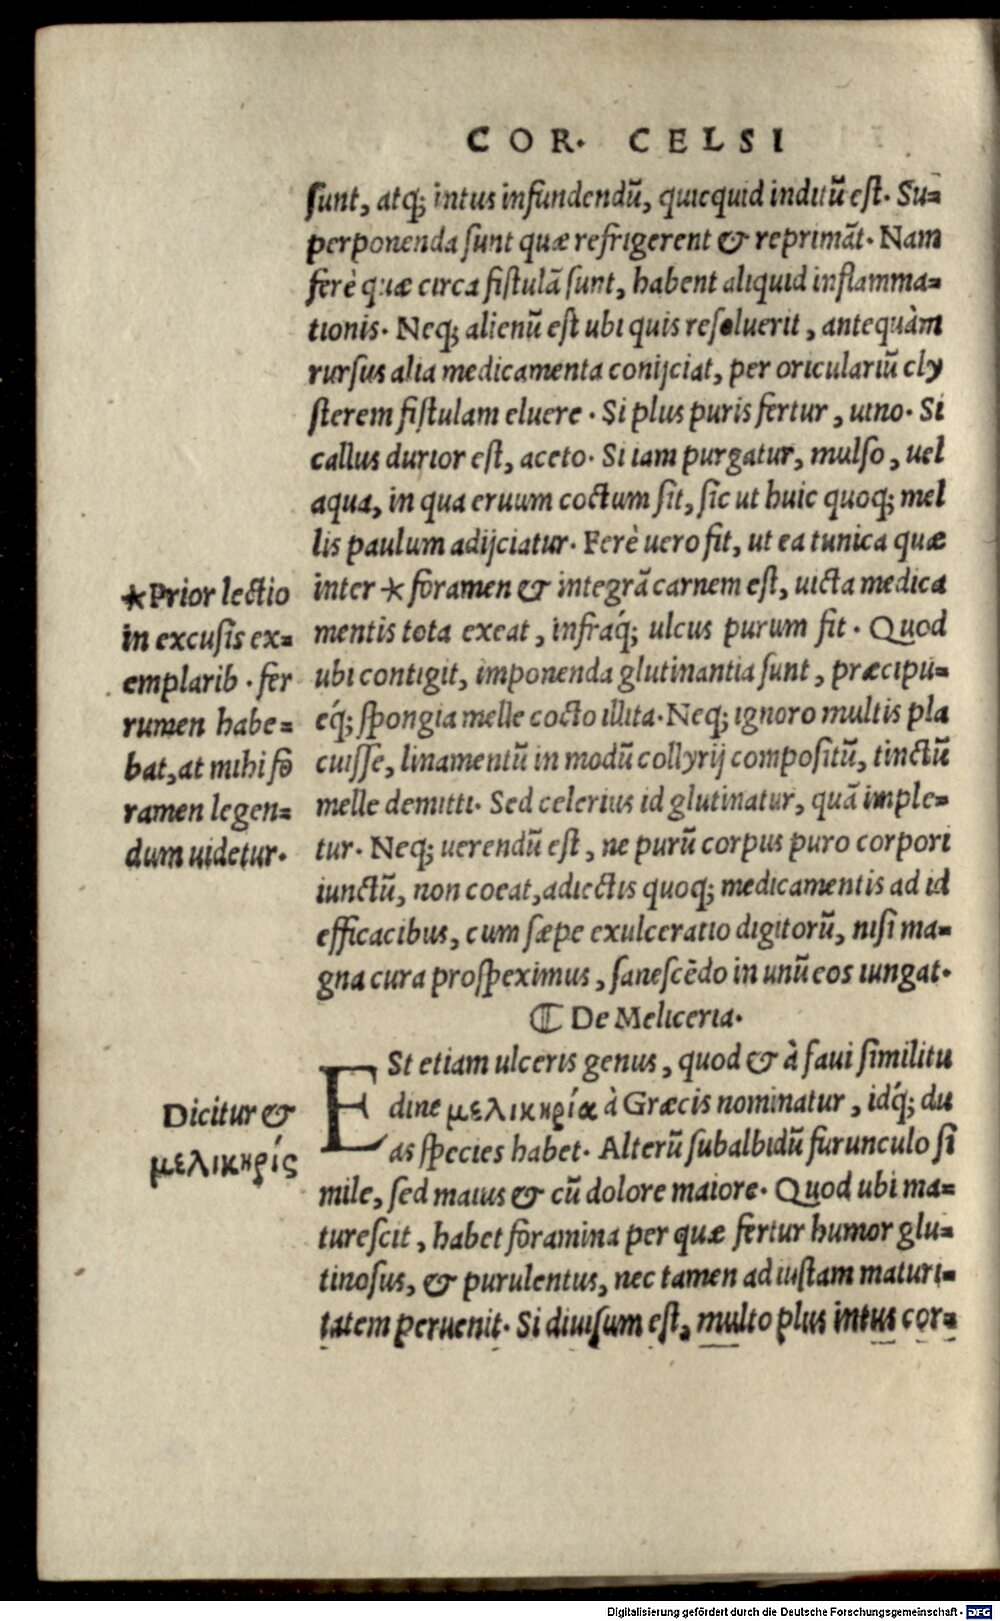 COR. CELSI
sunt, atq; intus infundendũ, quicquid inditũ est. Su=
perponenda sunt quæ refrigerent & reprimãt. Nam
ferè quæ circa fistulã sunt, habent aliquid inflamma=
tionis. Neq; alienũ est ubi quis resoluerit, antequàm
rursus alia medicamenta conijciat, per oriculariũ cly
sterem fistulam eluere. Si plus puris fertur, uino. Si
callus durior est, aceto. Si iam purgatur, mulso, uel
aqua, in qua eruum coctum sit, sic ut huic quoq; mel
lis paulum adijciatur. Ferè uero fit, ut ea tunica quæ
inter * foramen & integrã carnem est, uicta medica
mentis tota exeat, infraq́; ulcus purum fit. Quod
ubi contigit, imponenda glutinantia sunt, præcipu=
eq́; spongia melle cocto illita. Neq; ignoro multis pla
cuisse, linamentũ in modũ collyrij compositũ, tinctũ
melle demitti. Sed celerius id glutinatur, quã imple=
tur. Neq; uerendũ est, ne purũ corpus puro corpori
iunctũ, non coeat, adiectis quoq; medicamentis ad id
efficacibus, cum sæpe exulceratio digitorũ, nisi ma=
gna cura prospeximus, sanescẽdo in unũ eos iungat.
*Prior lectio
in excusis ex=
emplarib. fer
rumen habe=
bat, at mihi fo
ramen legen=
dum uidetur.
₵ De Meliceria.
ESt etiam ulceris genus, quod & à faui similitu
dine μελικηρία à Græcis nominatur, idq́; du
as species habet. Alterũ subalbidũ furunculo si
mile, sed maius & cũ dolore maiore. Quod ubi ma=
turescit, habet foramina per quæ fertur humor glu=
tinosus, & purulentus, nec tamen ad iustam maturi=
tatem peruenit. Si diuisum est, multo plus intus cor=
Dicitur &
μελικηρίς
Digitalisierung gefördert durch die Deutsche Forschungsgemeinschaft - DFG